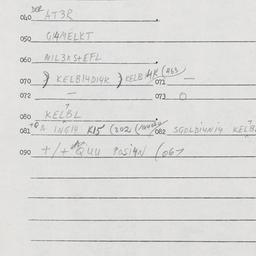 040 AT3R
050 G4MELKT
060 MIL3KStEFL
070 KELBl4DI4K KELB4K 071 —
072 — 073 O
080 KELBL
081 ING14 K15 (202 082 SGOLDI4NI4 KELB
090 +/+ QUU POSI4N (067